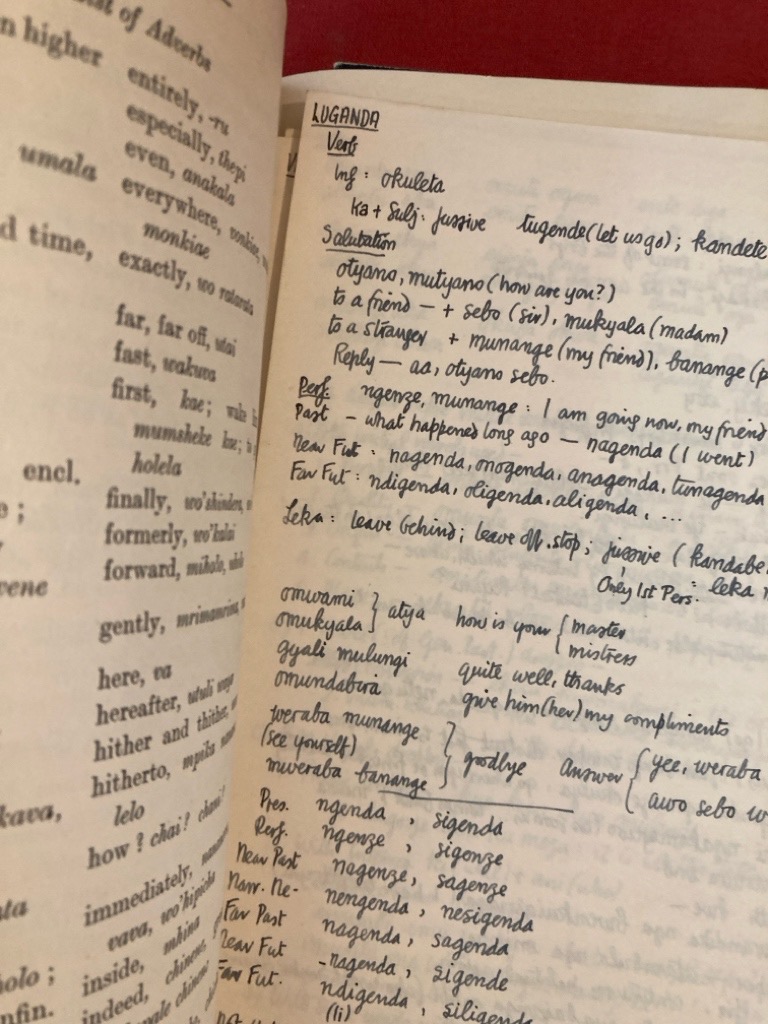 of Adverbs
higher entirely, -ru
especially, thepi
umala even, anakala
everywhere,
monkiae
time, exactly, wo
far, far off, utai
fast, wakuva
first, kae;
mumsheke kae;
encl. holela
finally, wo'shindere,
formerly, wo'kalai
forward,
gently,
here, va
hereafter,
hither and thither,
hitherto,
kava, lelo
how? chai?
immediately,
vava, wo'hipicha
inside,
indeed,
LUGANDA
Verb
Inf: okuleta
ka + Subj: jussive tugende (let us go); kandete
Salutation
otyano, mutyano (how are you?)
to a friend — + sebo (sir), mukyala (madam)
to a stranger + munange (my friend), banange (p
Reply — aa, otyano sebo.
Perf. ngenze, munange: I am going now, my friend
Past – what happened long ago — nagenda (I went)
Near Fut: nagenda, onogenda, anagenda, tunagenda
Far Fut: ndigenda, oligenda, aligenda, ...
Leka: leave behind; leave off, stop; jussive (kandabe
Only 1st Pers: leka
omwami } atya how is your { master
omukyala mistress
gyali mulungi quite well, thanks
omundabira give him (her) my compliments
weraba munange
(see yourself) } goodbye Answer { yee, weraba
mweraba banange awo sebo w
Pres. ngenda, sigenda
Perf. ngenze, sigenze
Near Past nagenze, sagenze
Narr. Ne- nengenda, nesigenda
Far Past nagenda, sagenda
Near Fut -nagenda, sigende
Far Fut. ndigenda, siligenda
(li)